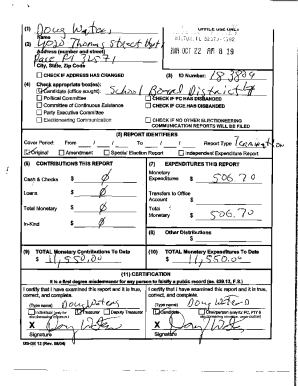 (1) Doug Waters
OFFICE USE ONLY
Name
(2) 4020 Thomas Street
Address (number and street)
Pace Fl 32571
City, State, Zip Code
OCT 22 AM 8 19
CHECK IF ADDRESS HAS CHANGED
(3) ID Number: 183809
(4) Check appropriate box(es):
Candidate (office sought): School Board District
Political Committee
CHECK IF PC HAS DISBANDED
Committee of Continuous Existence
CHECK IF CCE HAS DISBANDED
Party Executive Committee
Electioneering Communication
CHECK IF NO OTHER ELECTIONEERING
COMMUNICATION REPORTS WILL BE FILED
(5) REPORT IDENTIFIERS
Cover Period: From / / To / / Report Type Termination
Original Amendment Special Election Report Independent Expenditure Report
(6) CONTRIBUTIONS THIS REPORT
(7) EXPENDITURES THIS REPORT
Cash & Checks $ 0
Monetary
Expenditures $ 506.70
Loans $ 0
Transfers to Office
Account $
Total Monetary $ 0
Total
Monetary $ 506.70
In-Kind $ 0
(8) Other Distributions
$
(9) TOTAL Monetary Contributions To Date
$ 11,550.00
(10) TOTAL Monetary Expenditures To Date
$ 11,550.00
(11) CERTIFICATION
It is a first degree misdemeanor for any person to falsify a public record (ss. 839.13, F.S.)
I certify that I have examined this report and it is true,
correct, and complete.
I certify that I have examined this report and it is true,
correct, and complete.
(Type name) Doug Waters
(Type name) Doug Waters
Treasurer Deputy Treasurer
Candidate
X Doug Waters
X Doug Waters
Signature
Signature
DS-DE 12 (Rev. 08/04)